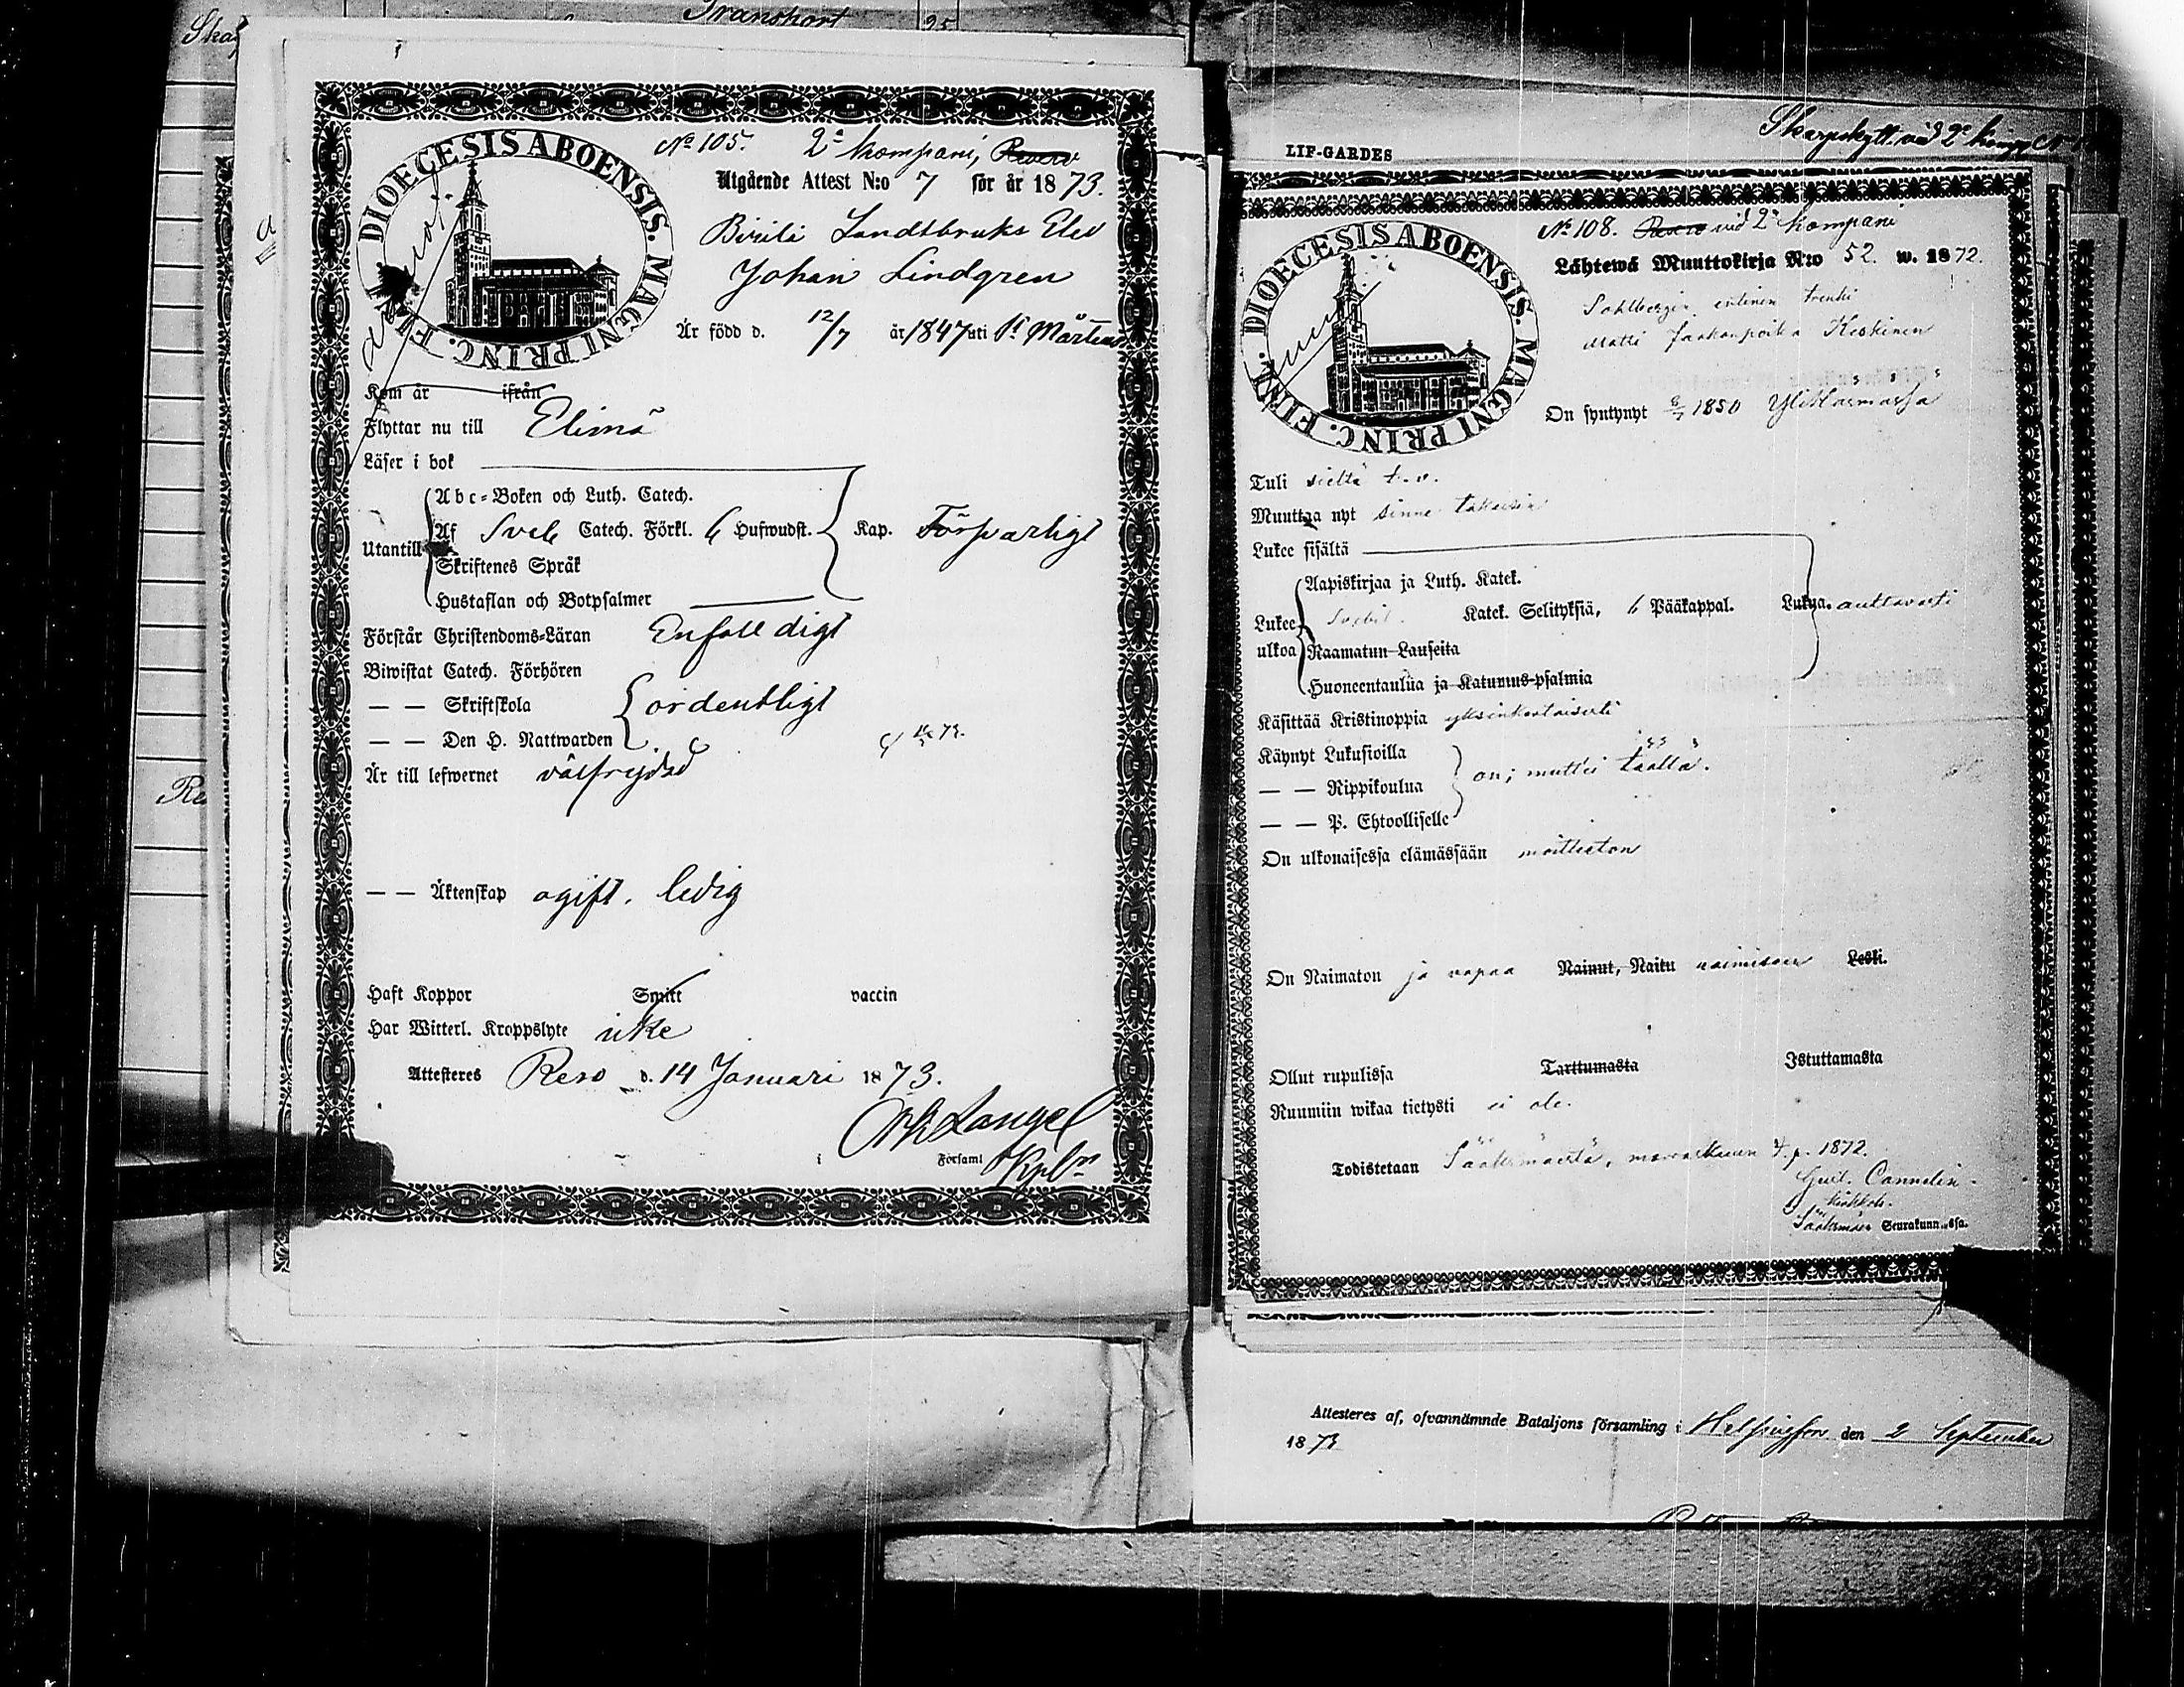 Transport 25
DIOECESIS ABOENSIS. MAGNI PRINC. FINL.
No 105. 2a kompani, Reserv
Utgående Attest N:o 7 för år 1873.
Landtbruks Elev
Johan Lindgren
Är född d. 12/7 år 1847 uti St Mårtens
Kom år ifrån
Flyttar nu till Elimä
Läser i bok
Abc-Boken och Luth. Catech.
Utantill Af Sveb Catech. Förkl. 6 Hufwudst. Kap. Försvarligt
Skriftenes Språk
Hustaflan och Botpsalmer
Förstår Christendoms-Läran Enfalldigt
Biwistat Catech. Förhören
— — Skriftskola ordentligt
— — Den H. Nattwarden
Är till lefwernet välfrejdad
— — Äktenskap ogift. ledig
Haft Koppor Smitt vaccin
Har Witterl. Kroppslyte icke
Attesteres Reso d. 14 Januari 1873.
Langel
i Församl Kplan
LIF-GARDES
Skarpskytt. vid 2a komp
DIOECESIS ABOENSIS. MAGNI PRINC. FINL.
No 108. Reserv vid 2a kompani
Lähtewä Muuttokirja N:o 52. w. 1872.
Sohlbergin entinen trenki
Matti Jaakonpoika Keskinen
On syntynyt 1850 Ylihärmässä
Tuli sieltä t.v.
Muuttaa nyt sinne takaisin
Lukee sisältä
Aapiskirjaa ja Luth. Katek.
Lukee ulkoa Svebil. Katek. Selityksiä, 6 Pääkappal. Lukua. auttavasti
Raamatun Lauseita
Huoneentaulua ja Katumus-psalmia
Käsittää Kristinoppia yksinkertaisesti
Käynyt Lukusioilla
— — Rippikoulua on; mutt'ei täällä.
— — P. Ehtoolliselle
On ulkonaisessa elämässään moitteeton
On Naimaton ja vapaa Nainut, Naitu naimiseen Leski.
Ollut rupulissa Tarttumasta Istuttamasta
Ruumiin wikaa tietysti ei ole.
Todistetaan Sääksmäestä, marraskuun 4 p. 1872.
Gust. Cannelin
kirkkoh.
Sääksmäen Seurakunnassa.
Attesteres af, ofvannämnde Bataljons församling i Helsingfors den 2 September
1873